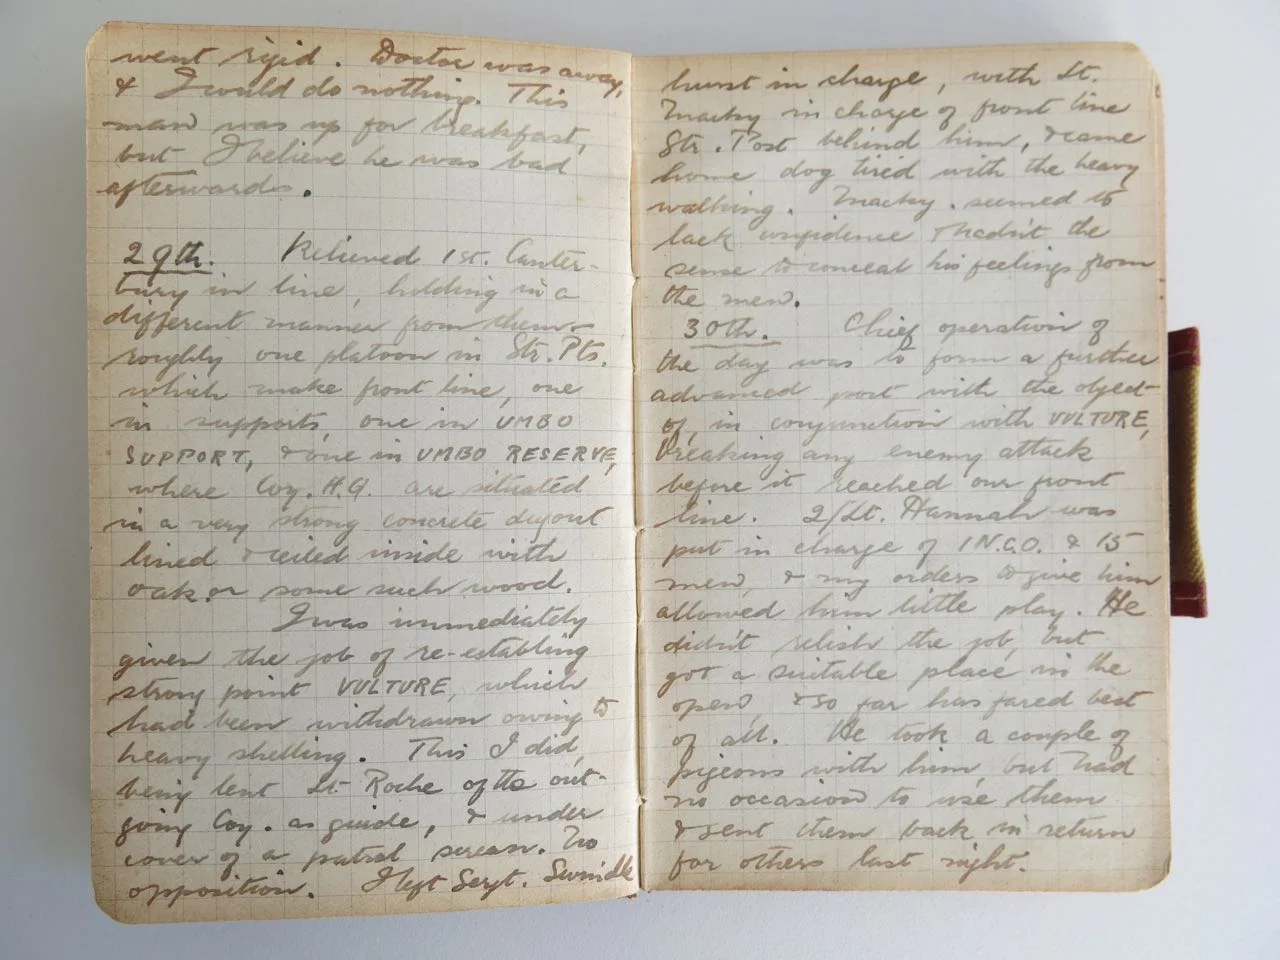 went rigid. Doctor was away,
& I could do nothing. This
man was up for breakfast,
but I believe he was bad
afterwards.
29th. Relieved 1st. Canter-
bury in line, holding in a
different manner from them –
roughly one platoon in Str. Pts.
which make front line, one
in supports, one in UMBO
SUPPORT, & one in UMBO RESERVE,
where Coy. H.Q. are situated
in a very strong concrete dugout
lined & ceiled inside with
oak or some such wood.
I was immediately
given the job of re-establing
strong point VULTURE, which
had been withdrawn owing to
heavy shelling. This I did,
being lent Lt Roche of the out-
going Coy. as guide, & under
cover of a patrol screen. No
opposition. I left Sergt. Swindle
hurst in charge, with Lt.
Macky in charge of front line
Str. Post behind him, & came
home dog tired with the heavy
walking. Macky seemed to
lack confidence & hadn't the
sense to conceal his feelings from
the men.
30th. Chief operation of
the day was to form a further
advanced post with the object
of, in conjunction with VULTURE,
breaking any enemy attack
before it reached our front
line. 2/Lt. Hannah was
put in charge of 1 N.C.O. & 15
men, & my orders to give him
allowed him little play. He
didn't relish the job, but
got a suitable place in the
open, & so far has fared best
of all. He took a couple of
pigeons with him, but had
no occasion to use them
& sent them back in return
for others last night.